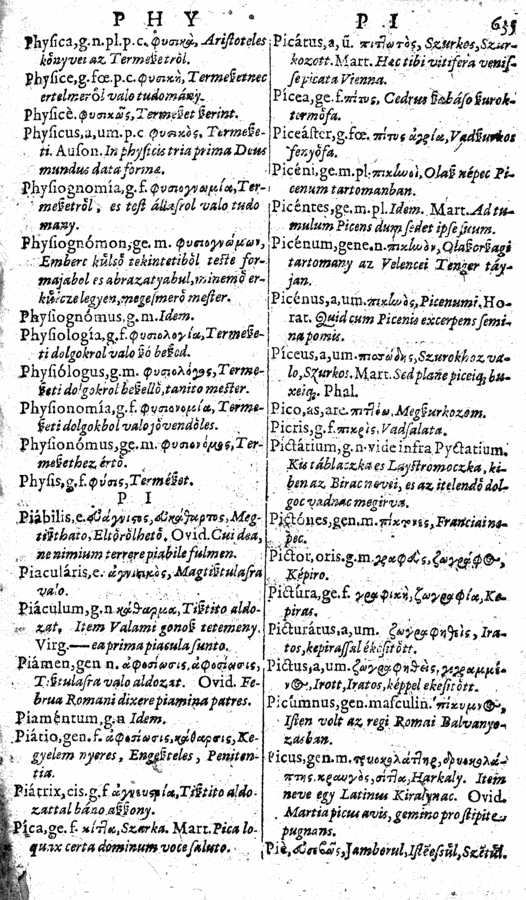 PHY
PI 635
Physica, g.n.pl.p.c. φυσικὰ, Aristoteles
könyvei az Termeßetröl.
Physice, g.fœ.p.c. φυσικὴ, Termeßetnec
ertelmeröl valo tudomány.
Physicè. φυσικῶς, Termeßet ßerint.
Physicus, a, um. p.c φυσικὸς, Termeße-
ti. Auson. In physicis tria prima Deus
mundus data forma.
Physiognomía, g.f. φυσιογνωμία, Ter-
meßetröl, es test állasrol valo tudo
many.
Physiognómon, ge.m. φυσιογνώμων,
Embert külsö tekintetiböl teste for-
majabol es abrazatyabul, minemö er-
kücze legyen, megesmerö mester.
Physiognómus, g.m. Idem.
Physiología, g.f. φυσιολογία, Termeße-
ti dolgokrol valo ßo beßed.
Physiólogus, g.m. φυσιολόγος, Terme-
ßeti dolgokrol beßellö, tanito mester.
Physionomía, g.f. φυσιονομία, Terme-
ßeti dolgokbol valo jövendöles.
Physionómus, ge.m. φυσιονόμος, Ter-
meßethez értö.
Physis, g.f. φύσις, Termeßet.
PI
Piábilis, e. Meg-
tißthato, Eltörölhetö. Ovid. Cui dea,
ne nimium terrere piabile fulmen.
Piaculáris, e. ἁγνιστικὸς, Magtißtulasra
valo.
Piáculum, g.n κάθαρμα, Tißtito aldo-
zat. Item Valami gonoß tetemeny.
Virg. — ea prima piacula sunto.
Piámen, gen n. ἀφοσίωσις, ἀφοσίωσις,
Tißtulasra valo aldozat. Ovid. Fe-
brua Romani dixere piamina patres.
Piaméntum, g.n Idem.
Piátio, gen. f. ἀφοσίωσις, κάθαρσις, Ke-
gyelem nyeres, Engeßteles, Peniten-
tia.
Piátrix, cis, g.f Tißtito aldo-
zattal bano aßßony.
Píca, ge.f. κίττα, Szarka. Mart. Pica lo-
quax certa dominum voce saluto.
Picátus, a, ũ. πιττωτὸς, Szurkos, Szur-
kozott. Mart. Hæc tibi vitifera venis-
se picata Vienna.
Pícea, ge.f. πίτυς, Cedrus ßabáso ßurok-
termöfa.
Piceáster, g.fœ. πίτυς ἀγρία, Vad ßurkos
fenyöfa.
Picéni, ge.m.pl. Olaß népec Pi-
cenum tartomanban.
Picéntes, ge.m.pl. Idem. Mart. Ad tu-
mulum Picens dum sedet ipse suum.
Picénum, gene.n. Olaßorßagi
tartomany az Velencei Tenger táy-
jan.
Picénus, a, um. Picenumi. Ho-
rat. Quid cum Picenis excerpens semi-
na pomis.
Píceus, a, um. Szurokhoz va-
lo, Szurkos. Mart. Sed plane piceiq; bu-
xeiq; Phal.
Pico, as, are. Megßurkozom.
Picris, g.f. πικρὶς. Vad salata.
Pictátium, g.n. vide infra Pyctatium.
Kis táblaczka es Laystromoczka, ki-
ben az Birac nevei, es az itelendö dol-
goc vadnac megirva.
Pictónes, gen.m. πίκτονες, Franciai ne-
pec.
Pictor, oris. g.m. γραφεὺς, ζωγράφος,
Képiro.
Pictúra, ge.f. γραφικὴ, ζωγραφία, Ke-
piras.
Picturátus, a, um. ζωγραφηθεὶς, Ira-
tos, kepirassal ékesitött.
Pictus, a, um. ζωγραφηθεὶς, γεγραμμέ-
νος, Irott, Iratos, képpel ekesitött.
Picúmnus, gen.masculin. πίκυμνος,
Isten volt az regi Romai Balvanyo-
zasban.
Picus, gen.m. Harkaly. Item
neve egy Latinus Kiralynac. Ovid.
Martia picus avis, gemino pro stipite
pugnans.
Piè, εὐσεβῶς, Jamborul, Isteessül, Szëtül.